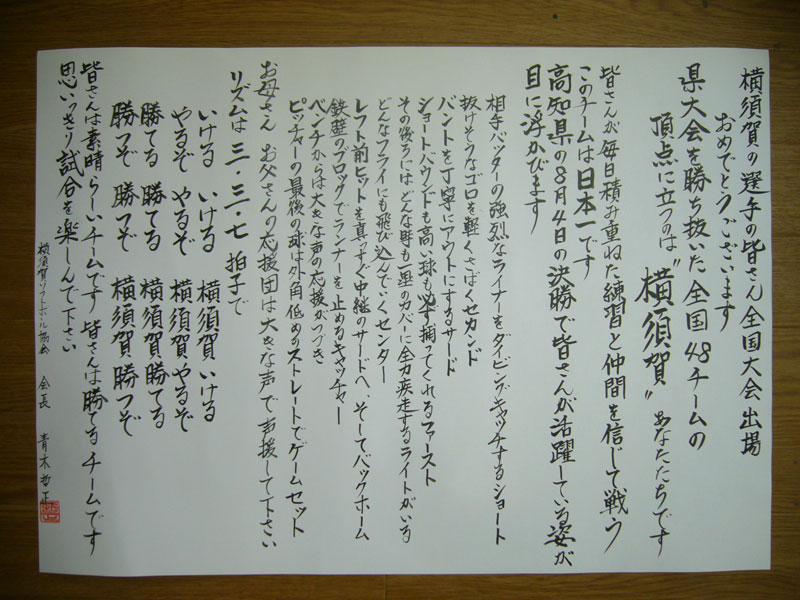 横須賀の選手の皆さん 全国大会出場
おめでとうございます
県大会を勝ち抜いた全国48チームの
頂点に立つのは〝横須賀〟あなたたちです
皆さんが毎日積み重ねた練習と仲間を信じて戦う
このチームは日本一です
高知県の8月4日の決勝で皆さんが活躍している姿が
目に浮かびます
相手バッターの強烈なライナーをダイビングキャッチするショート
抜けそうなゴロを軽くさばくセカンド
バントを丁寧にアウトにするサード
ショートバウンドも高い球も必ず捕ってくれるファースト
その後ろにはどんな時も一塁のカバーに全力疾走するライトがいる
どんなフライにも飛び込んでいくセンター
レフト前ヒットを真っすぐ中継のサードへ、そしてバックホーム
鉄壁のブロックでランナーを止めるキャッチャー
ベンチからは大きな声の応援がつづき
ピッチャーの最後の球は外角低めのストレートでゲームセット
お母さん お父さんの応援団は大きな声で声援して下さい
リズムは 三・三・七 拍子で
いける いける 横須賀いける
やるぞ やるぞ 横須賀やるぞ
勝てる 勝てる 横須賀勝てる
勝つぞ 勝つぞ 横須賀勝つぞ
皆さんは素晴らしいチームです 皆さんは勝てるチームです
思いっきり試合を楽しんで下さい
横須賀ソフトボール協会 会長 青木哲正